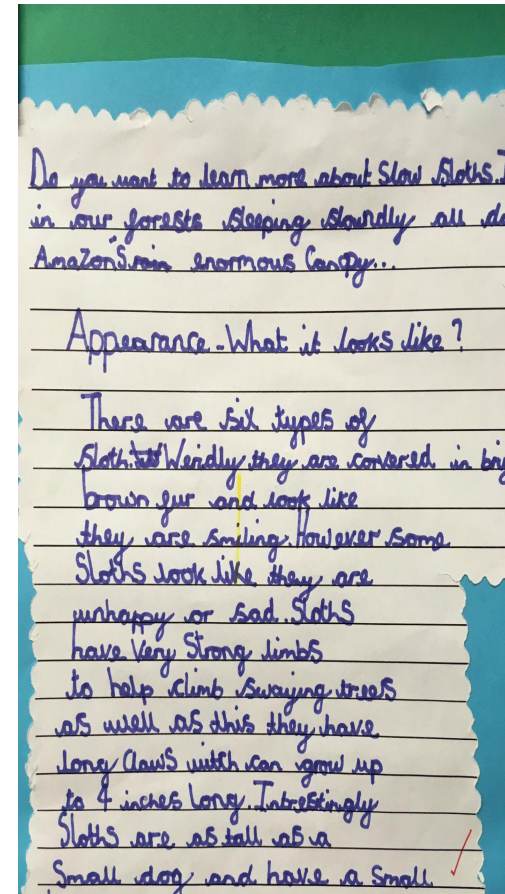 Do you want to learn more about Slow Sloths.
in our forests sleeping soundly all
Amazon"s rain enormous Canopy...
Appearance - What it looks like?
There are six types of
sloth. Weirdly they are convered in
brown fur and look like
they are smiling. However some
Sloths look like they are
unhappy or sad. Sloths
have Very Strong limbs
to help climb swaying trees
as well as this they have
long claws witth can grow up
to 4 inches Long. Intrestingly
Sloths are as tall as a
Small dog and have a Small